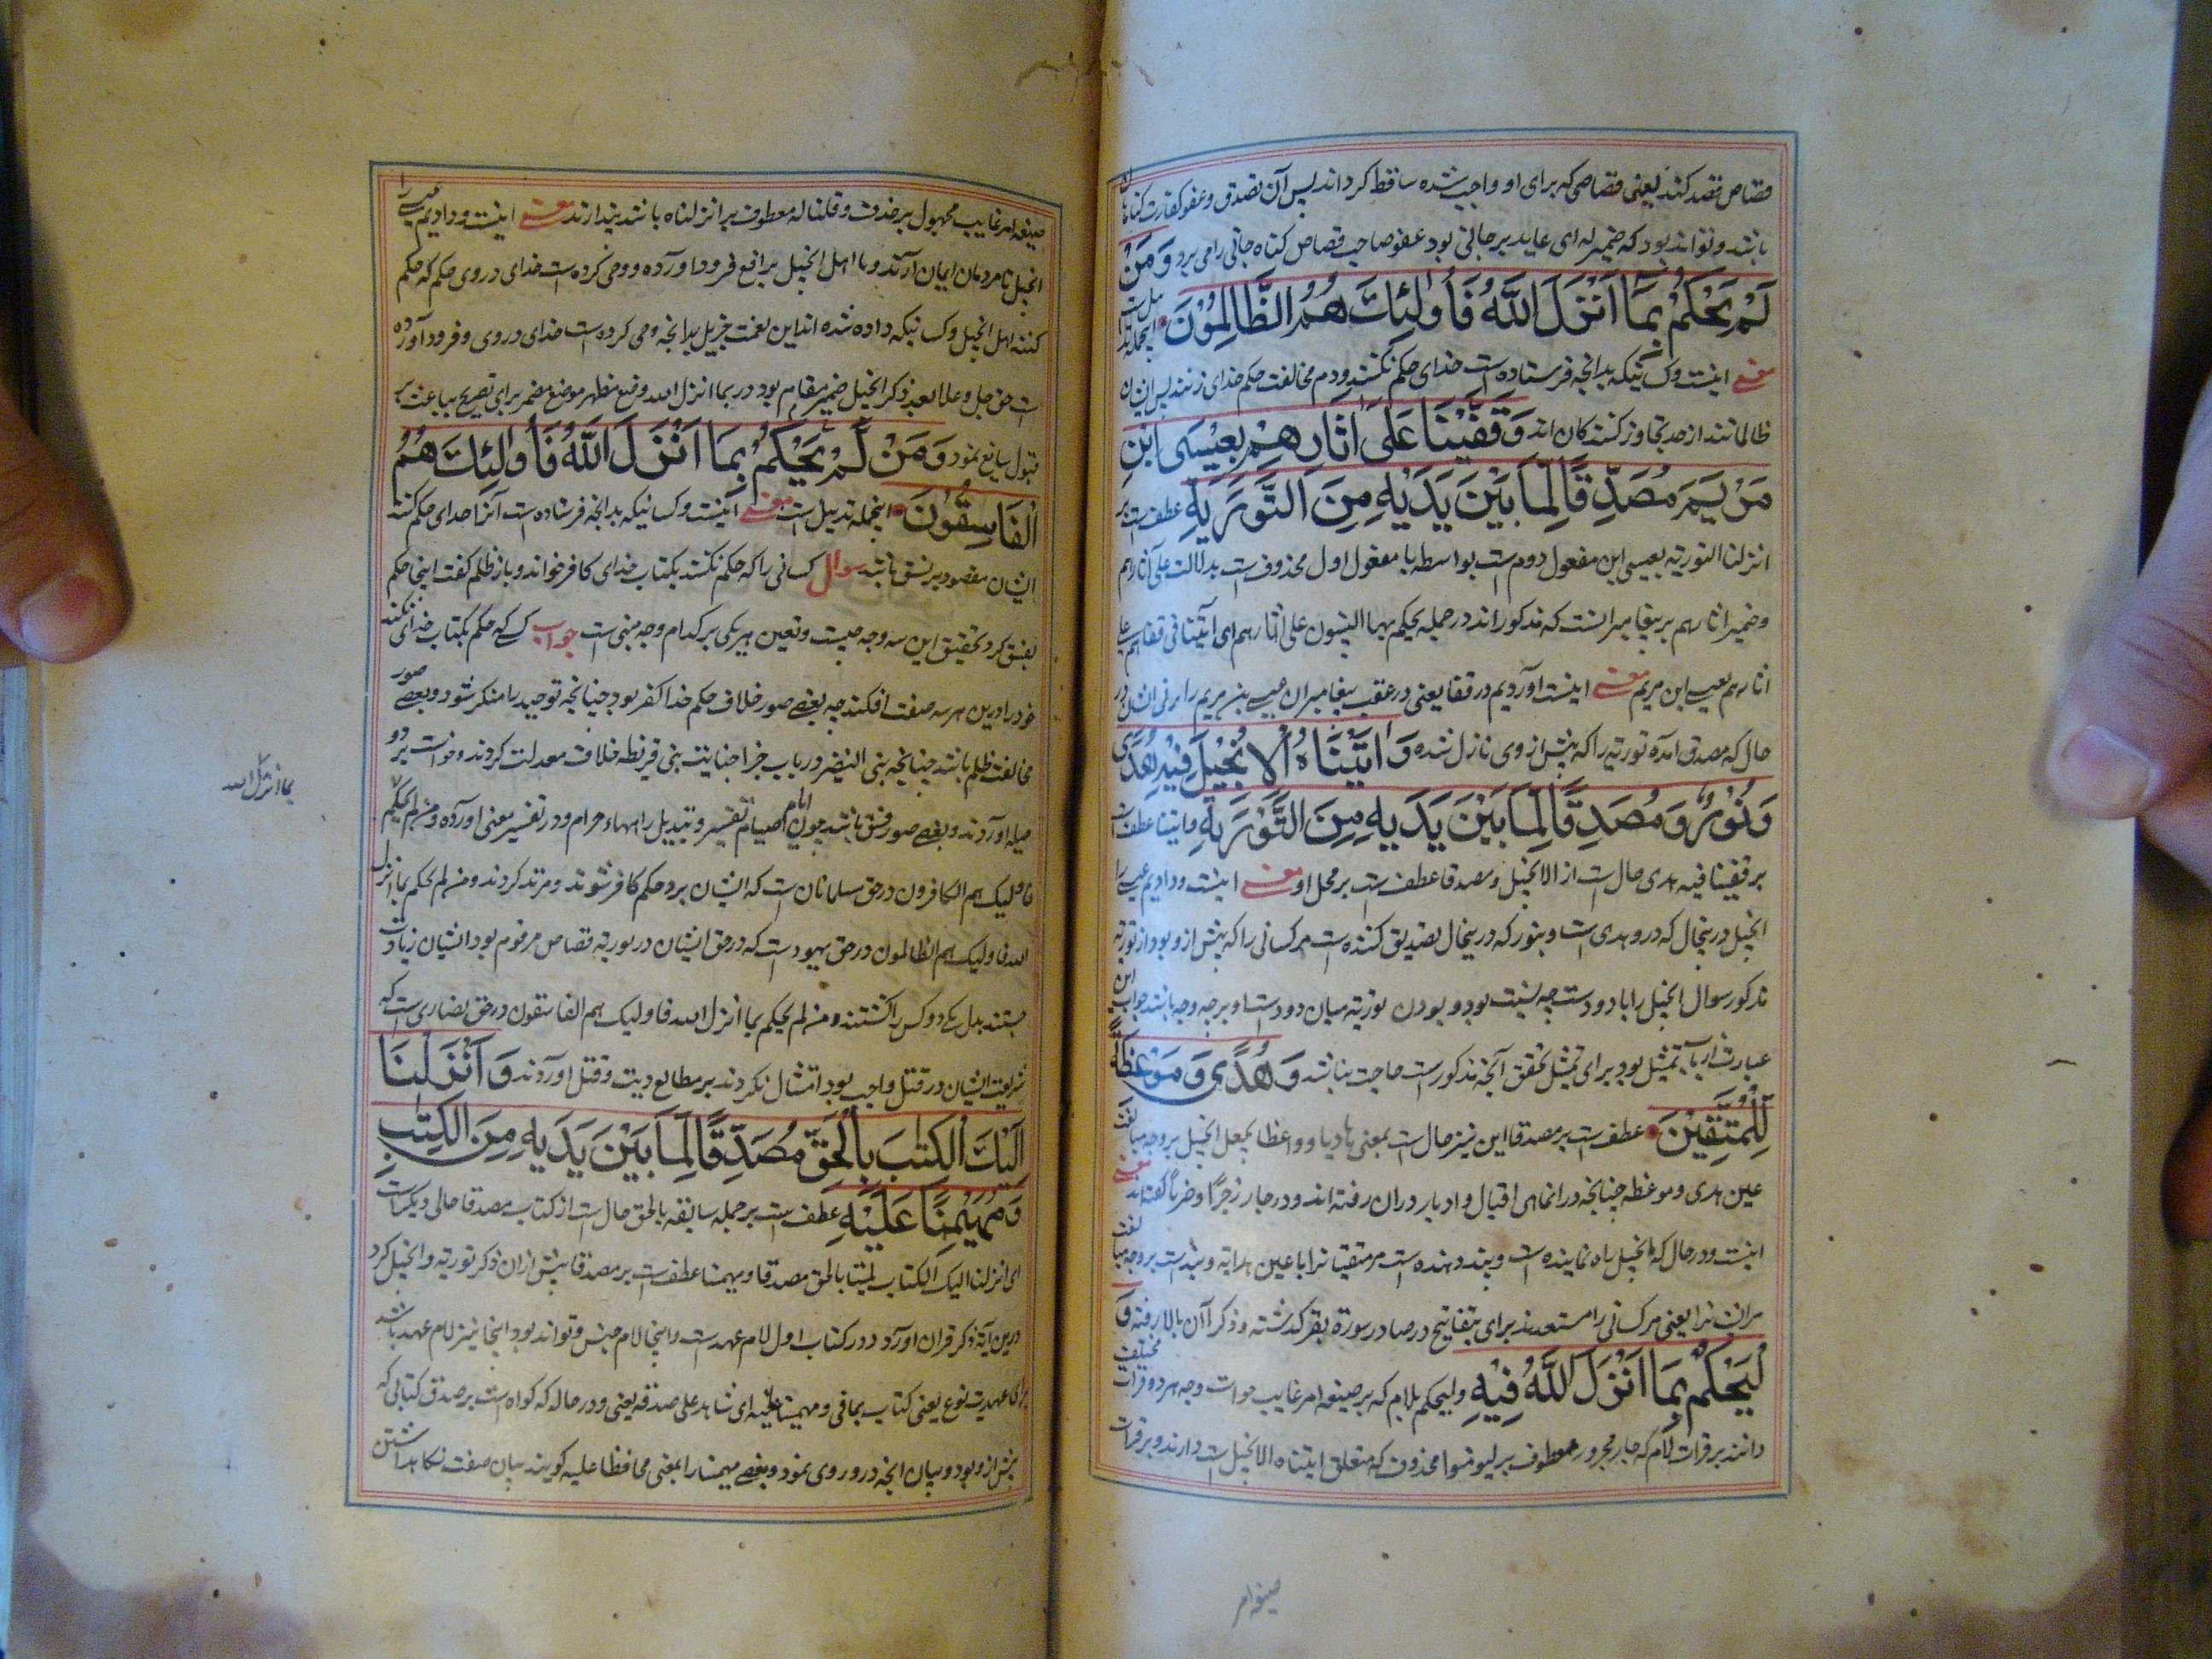 قصاص قصد کند یعنی قصاصی که برای او واجب شده ساقط کرداند پس آن تصدق و عفو کفارت کناه
باشد و تواند بود که ضمیر له ای عاید بر جانی بود عفو صاحب قصاص کناه جانی را می برد وَمَنْ
لَمْ یَحْکُمْ بِمَا اَنْزَلَ اللَّهُ فَأُولٰئِكَ هُمُ الظَّالِمُوْنَ
معنی اینست و کسانیکه بدانچه فرستاده است خدای حکم نکنند و دم مخالفت حکم خدای زنند پس ایشان
ظالمانند از حد تجاوز کنندکان اند وَقَفَّیْنَا عَلٰی اٰثَارِهِمْ بِعِیْسَی ابْنِ
مَرْیَمَ مُصَدِّقًا لِمَا بَیْنَ یَدَیْهِ مِنَ التَّوْرَیٰةِ عطف است بر
انزلنا التوریة بعیسی ابن مفعول دوم است بواسطه با مفعول اول محذوف است بدلالت علی آثارهم
و ضمیر اثارهم بر پیغامبرانست که مذکور اند در جمله یحکم بها النبیون علی اثارهم ای اتینا فی قفاهم علی
اثارهم بعیسی ابن مریم معنی اینست آوردیم در قفا یعنی در عقب پیغامبران عیسی بن مریم را
حال که مصدق آمده توریة را که پیش از وی نازل شده وَاٰتَیْنَاهُ الْاِنْجِیْلَ فِیْهِ هُدًی
وَنُوْرٌ وَمُصَدِّقًا لِمَا بَیْنَ یَدَیْهِ مِنَ التَّوْرَیٰةِ و اتینا عطف است
بر قفینا فیه هدی حال است از الانجیل و مصدقا عطف است بر محل او معنی اینست و دادیم عیسی را
انجیل در ینحال که درو هدی است و نور که در ینحال تصدیق کننده است مر کسانی را که پیش ازو بود از توریة
مذکور سوال انجیل را با دو دست چه نسبت بود و بودن توریة میان دو دست او بر چه وجه باشد جواب این
عبارت از باب تمثیل بود برای تمثیل تحقق آنچه مذکور است حاجت نباشد وَهُدًی وَمَوْعِظَةً
لِلْمُتَّقِیْنَ عطف است بر مصدقا این نیز حال است بمعنی هادیا و واعظا بجعل انجیل بر وجه مبالغت
عین هدی و موعظه چنانچه در انماهی اقبال و ادبار دران رفته اند و در جار زجرًا و ضربًا کفته اند معنی
اینست و در حال که انجیل راه نماینده است و پند دهنده است مر متقیان را با عین هدایة و پند است بر وجه مبالغت
مر انسان را یعنی مر کسانی را مستعد ند برای در صدر سورة بقر کذشته و ذکر آن بالا رفته وَ
لْیَحْکُمْ بِمَا اَنْزَلَ اللَّهُ فِیْهِ و لیحکم بلام که بر صیغه امر غایب خوانست وجه هر دو قرات مختلف
دانند بر قرات لام که جار مجرور معطوف بر لیومنوا محذوف که متعلق اتیناه الانجیل است دارند و بر قرات
صیغه امر
صیغه امر غایب مجهول بر حذف و قلنا له معطوف بر انزلناه باشد پندارند معنی اینست و دادیم عیسی را
انجیل تا مردمان ایمان آرند و با اهل انجیل بر افع فرود آورده و وحی کرده است خدای در وی حکم که حکم
کنند اهل انجیل و کسانیکه داده شده اند این نعمت جزیل بدانچه وحی کرده است خدای در وی و فرود آورده
است حق جل و علا بعد ذکر انجیل ضمیر مقام بود در بما انزل الله وضع مظهر موضع مضمر برای تصریح بباعث بر
قبول سایغ نمود وَمَنْ لَمْ یَحْکُمْ بِمَا اَنْزَلَ اللَّهُ فَأُولٰئِكَ هُمُ
الْفَاسِقُوْنَ اینجمله تذییل است معنی اینست و کسانیکه بدانچه فرستاده است آنرا خدای حکم نکنند
ایشان مقصود بر فسق باشد سوال کسانی را که حکم نکنند بکتاب خدای کافر خواند و باز ظلم کفت اینجا حکم
بفسق کرد تحقیق این سه وجه چیست و تعین هر یکی بر کدام وجه مبنی است جواب کسی که حکم بکتاب خدای نکند
خود را درین هر سه صفت افکند چه بعضی صور خلاف حکم خدا کفر بود چنانچه توحید را منکر شود و بعضی صور
مخالفت ظلم باشد چنانچه بنی النضیر در باب جزا جنایت بنی قریظه خلاف معدلت کردند و خواست بر دو
میله آوردند و بعضی صور فسق باشد چون ایام صیام تفسیر و تبدیل را حرام و در تفسیر معنی آورده و من لم یحکم
بما انزل الله
فاولیک هم الکافرون در حق مسلمانان است که ایشان برد حکم کافر شوند و مرتد کردند و من لم یحکم بما انزل
الله فاولیک هم الظالمون در حق یهود است که در حق ایشان در توریة قصاص مرقوم بود ایشان زیادت
جستند بدل یکی دو کس را کشتند و من لم یحکم بما انزل الله فاولیک هم الفاسقون در حق نصاری است که
شریعت ایشان در قتل واجب بود امتثال نکردند بر مطالع دیت و قتل آوردند وَاَنْزَلْنَا
اِلَیْكَ الْكِتٰبَ بِالْحَقِّ مُصَدِّقًا لِمَا بَیْنَ یَدَیْهِ مِنَ الْكِتٰبِ
وَمُهَیْمِنًا عَلَیْهِ عطف است بر جمله سابقه بالحق حال است از کتاب مصدقا حالی دیکر است
ای انزلنا الیک الکتاب بالحق مصدقا و مهیمنا عطف است بر مصدقا پیش ازان ذکر توریة و انجیل کرد
درین آیة ذکر قران آورد و در کتاب اول لام عهد است و اینجا لام جنس و تواند بود اینجا نیز لام عهد باشد
برای عهدیت نوع یعنی کتاب و مهیمنا علیه ای شاهد علی صدقه یعنی و در حاله که کواه است بر صدق کتابی که
پیش ازو بود و بیان آنچه درو روی نمود و بعضی مهیمنا را بمعنی محافظا علیه کویند بیان صفت نکاه داشتن